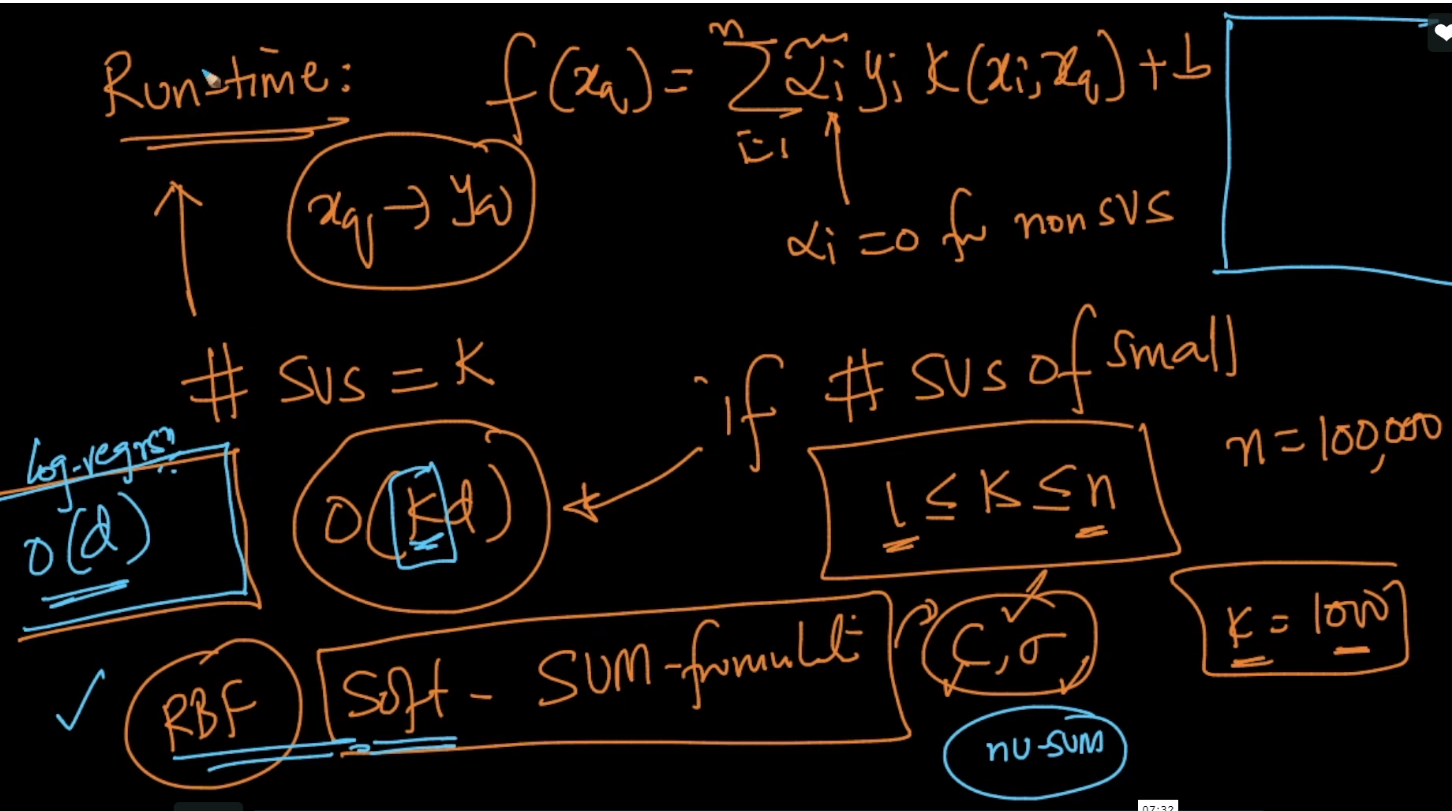 Run-time: f(xq) = Σ αi yi K(xi, xq) + b
n
i=1
xq → yq
αi = 0 for non SVs
# SVs = K
if # SVs of small
n = 100,000
log-regrsn:
O(d)
O(Kd)
1 ≤ K ≤ n
K = 1000
RBF Soft - SVM-formulati
C, σ
nu-SVM
07:32